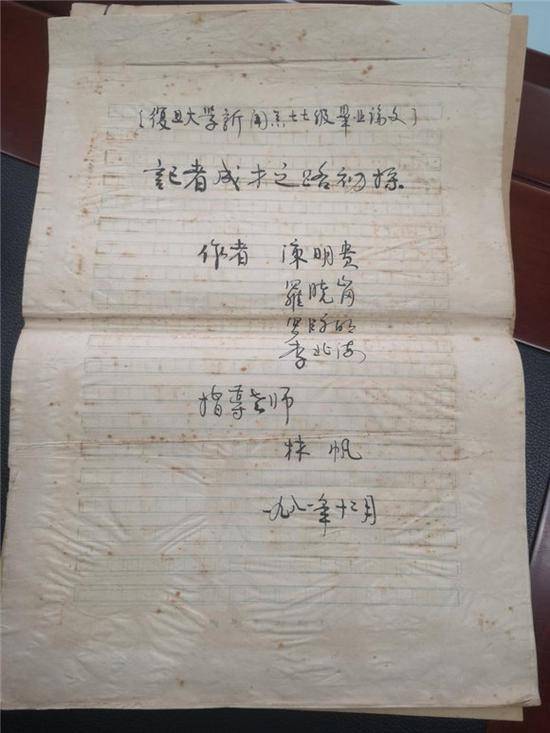 ［復旦大学新闻系七七级畢业論文］
記者成才之路初探
作者 陳明贵
羅晓岗
李北海
指導老师
林帆
一九八一年十二月